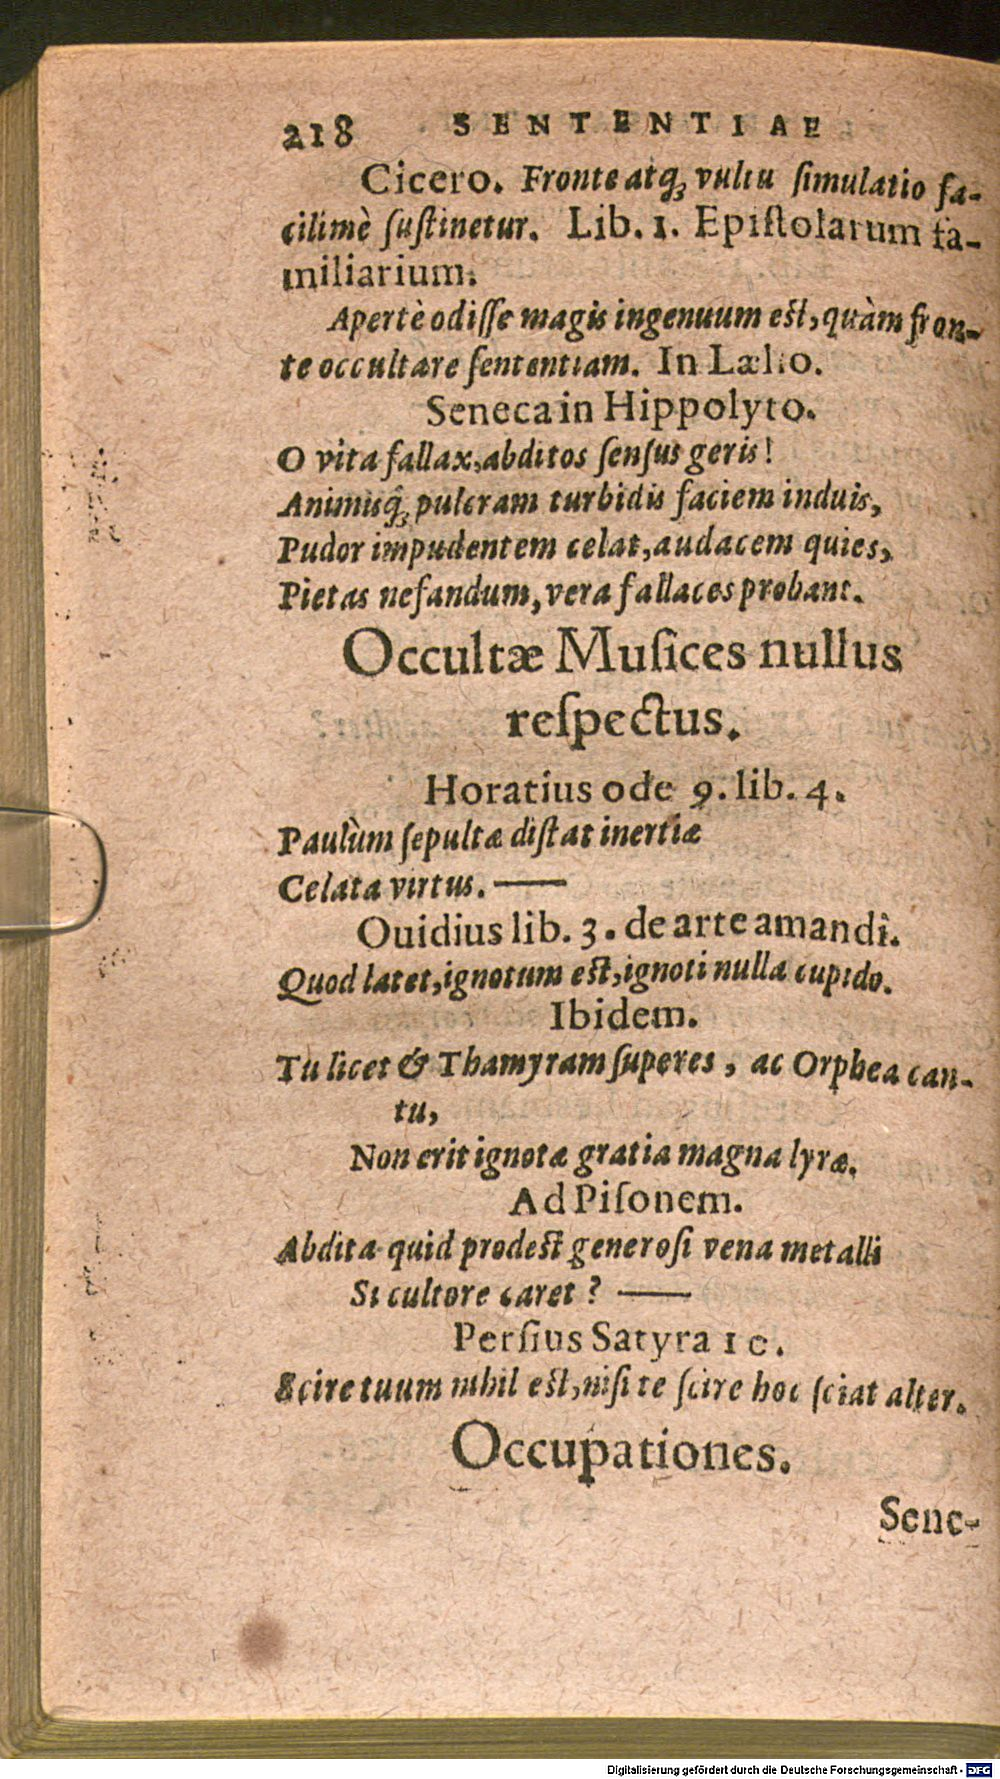 218 SENTENTIAE
Cicero. Fronte atq́ꝫ vultu ſimulatio fa-
cilimè ſuſtinetur. Lib. 1. Epiſtolarum fa-
miliarium.
Apertè odiſſe magis ingenuum eſt, quàm fron-
te occultare ſententiam. In Lælio.
Seneca in Hippolyto.
O vita fallax, abditos ſenſus geris!
Animisq́ꝫ pulcram turbidis faciem induis,
Pudor impudentem celat, audacem quies,
Pietas nefandum, vera fallaces probant.
Occultæ Muſices nullus
reſpectus.
Horatius ode 9. lib. 4.
Paulùm ſepultæ diſtat inertiæ
Celata virtus. ——
Ouidius lib. 3. de arte amandi.
Quod latet, ignotum eſt, ignoti nulla cupido.
Ibidem.
Tu licet & Thamyram ſuperes, ac Orphea can-
tu,
Non erit ignotæ gratia magna lyræ.
Ad Piſonem.
Abdita quid prodeſt generoſi vena metalli
Si cultore caret? ——
Perſius Satyra 10.
Scire tuum nihil eſt, niſi te ſcire hoc ſciat alter.
Occupationes.
Sene-
Digitalisierung gefördert durch die Deutsche Forschungsgemeinschaft - DFG